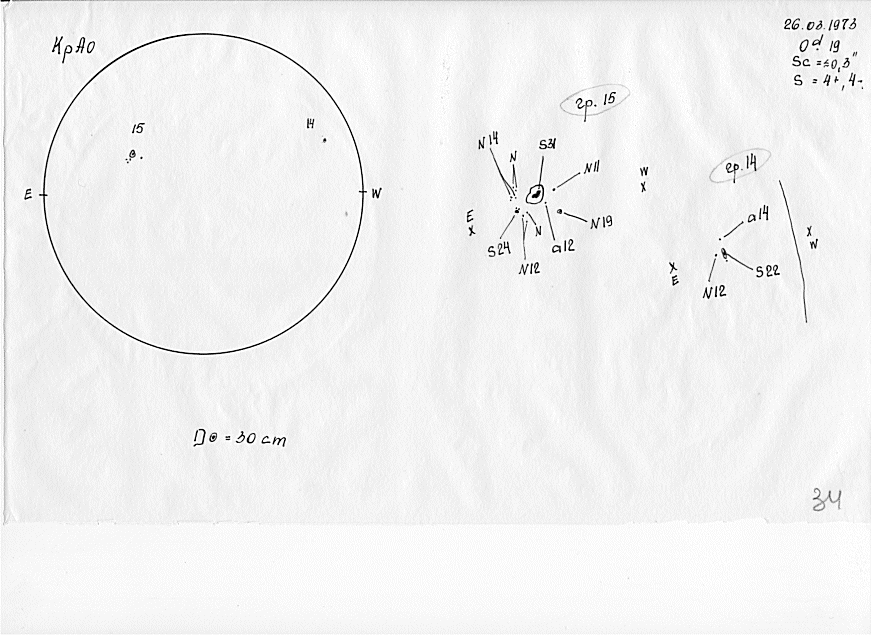 КрАО
26.03.1973
0d 19
Sc = ±0,3"
S = 4+, 4-
15
14
E
W
D⊙ = 30 cm
гр. 15
N14
N
S31
N11
W
X
E
X
S24
N12
N
a12
N19
гр. 14
a14
X
W
X
E
N12
S22
34